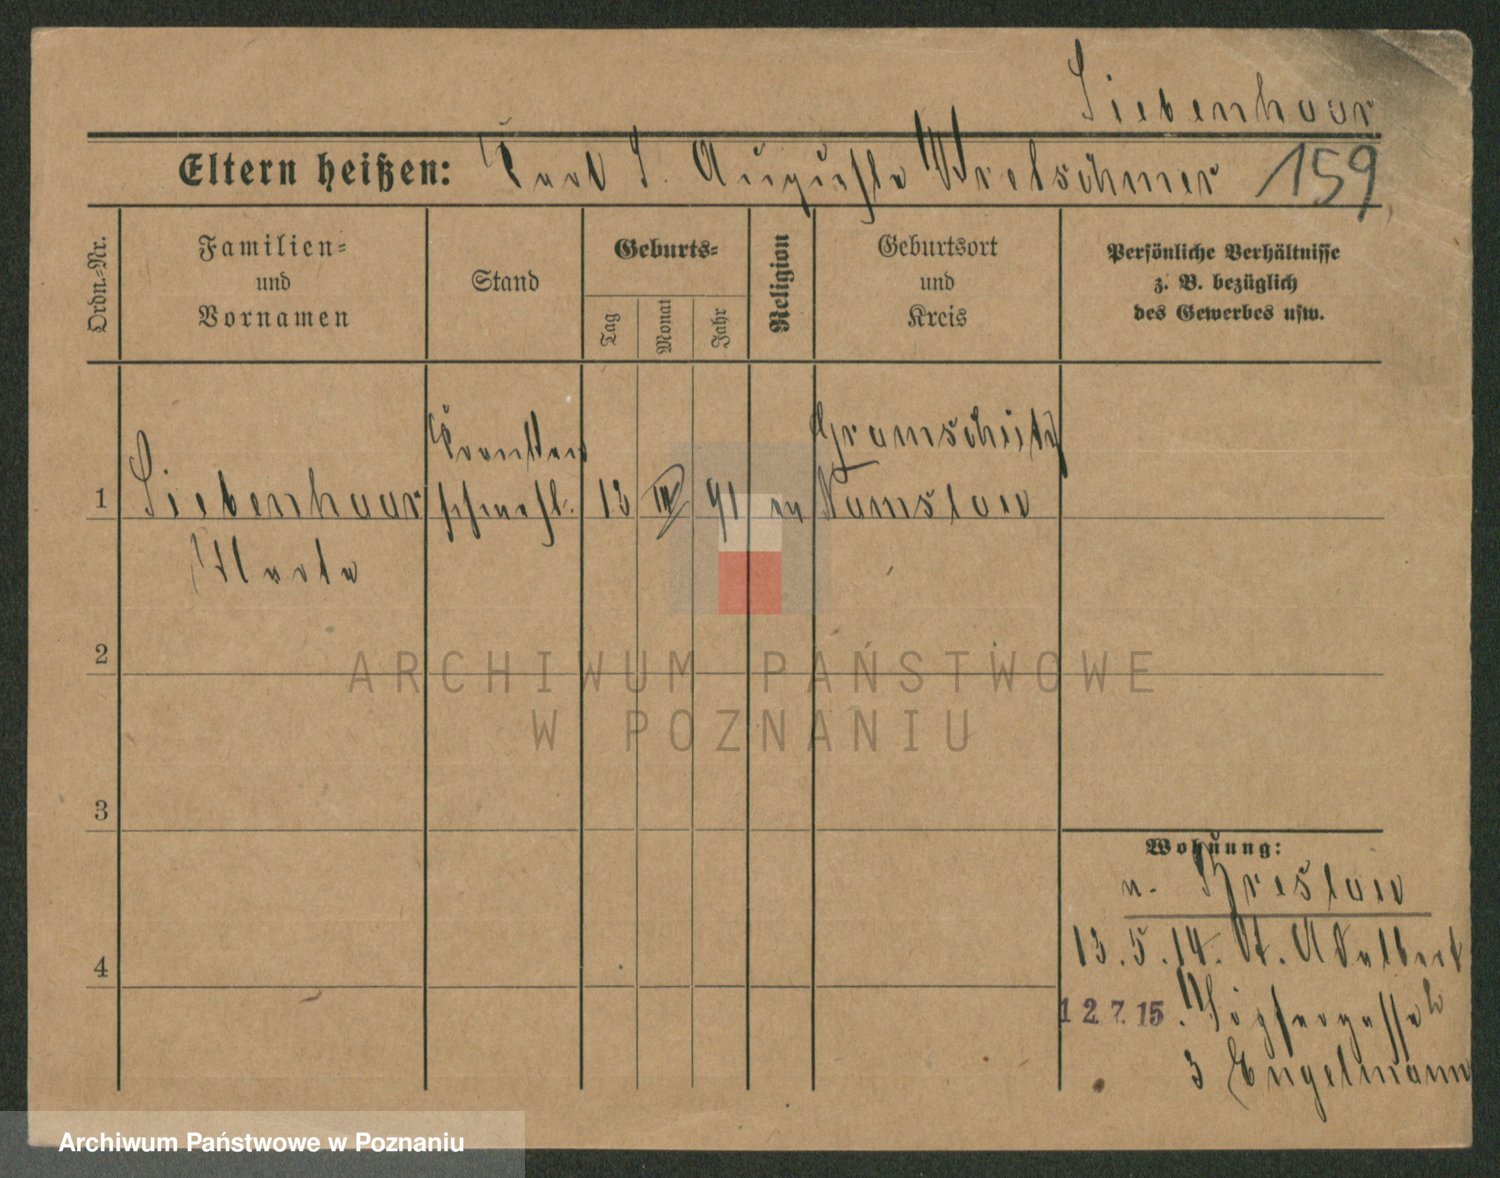 Siebenhaar
Eltern heißen: Karl S. Auguste Kretschmer 159
Ordn.-Nr.
Familien-
und
Vornamen
Stand
Geburts-
Tag
Monat
Jahr
Religion
Geburtsort
und
Kreis
Persönliche Verhältnisse
z. B. bezüglich
des Gewerbes usw.
1 Siebenhaar
Kranken
schwest. 13 III 91 ev
Gramschütz
Namslau
2
3
4
Wohnung:
n. Breslau
13.5.14. St. Adalbert
12.7.15. Töpfergasse
3 Engelmann
ARCHIWUM PAŃSTWOWE
W POZNANIU
Archiwum Państwowe w Poznaniu